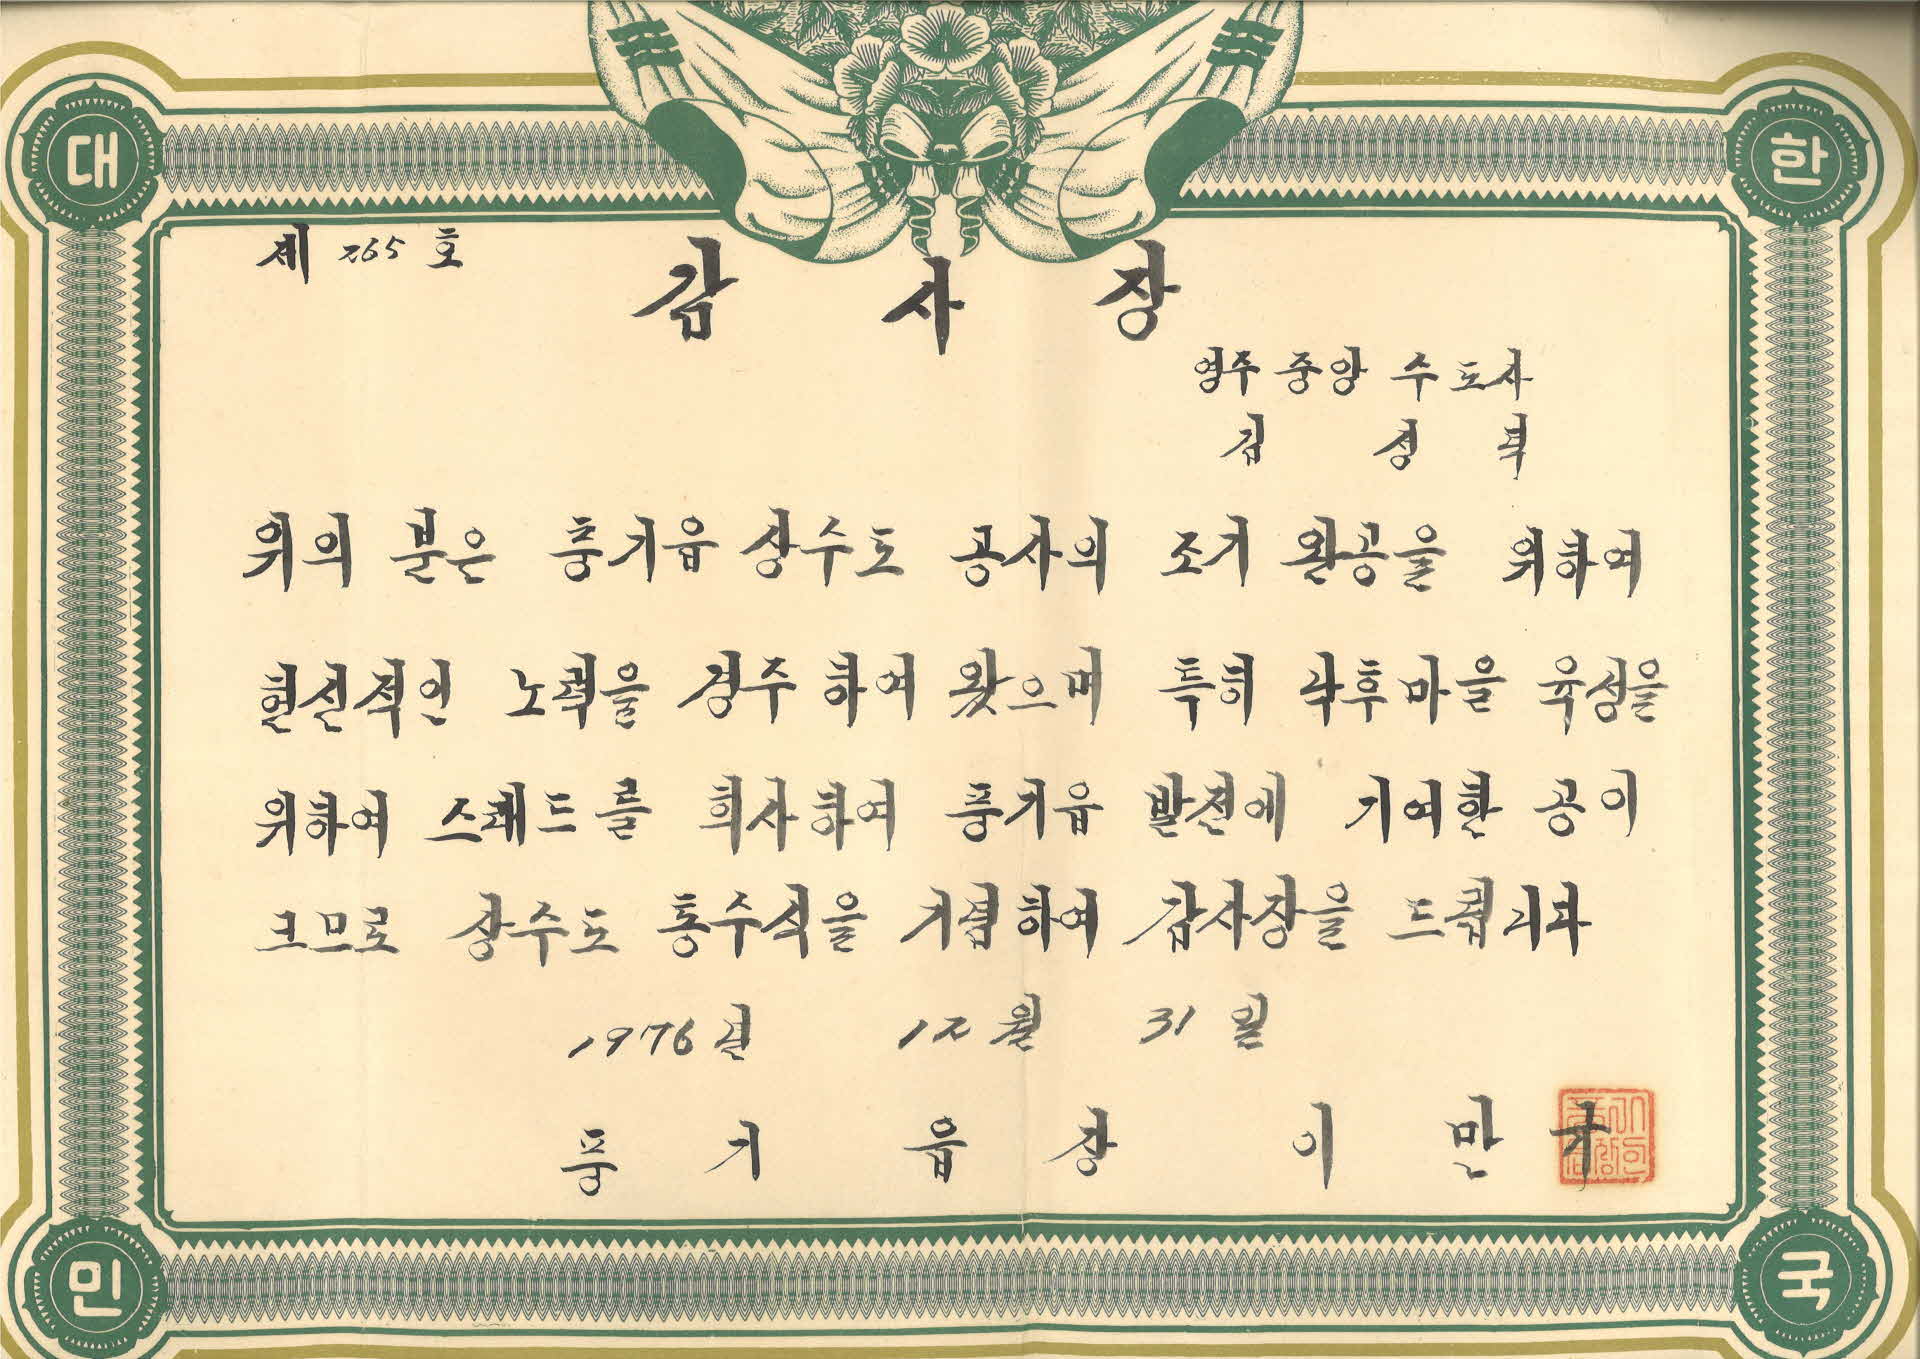 대 한
제 265 호
감 사 장
영주 중앙 수도사
김 성 덕
위의 분은 풍기읍 상수도 공사의 조기 완공을 위하여
헌신적인 노력을 경주하여 왔으며 특히 낙후마을 육성을
위하여 스래드를 희사하여 풍기읍 발전에 기여한 공이
크므로 상수도 통수식을 기념하여 감사장을 드립니다
1976년 12월 31일
풍 기 읍 장 이 만
민 국